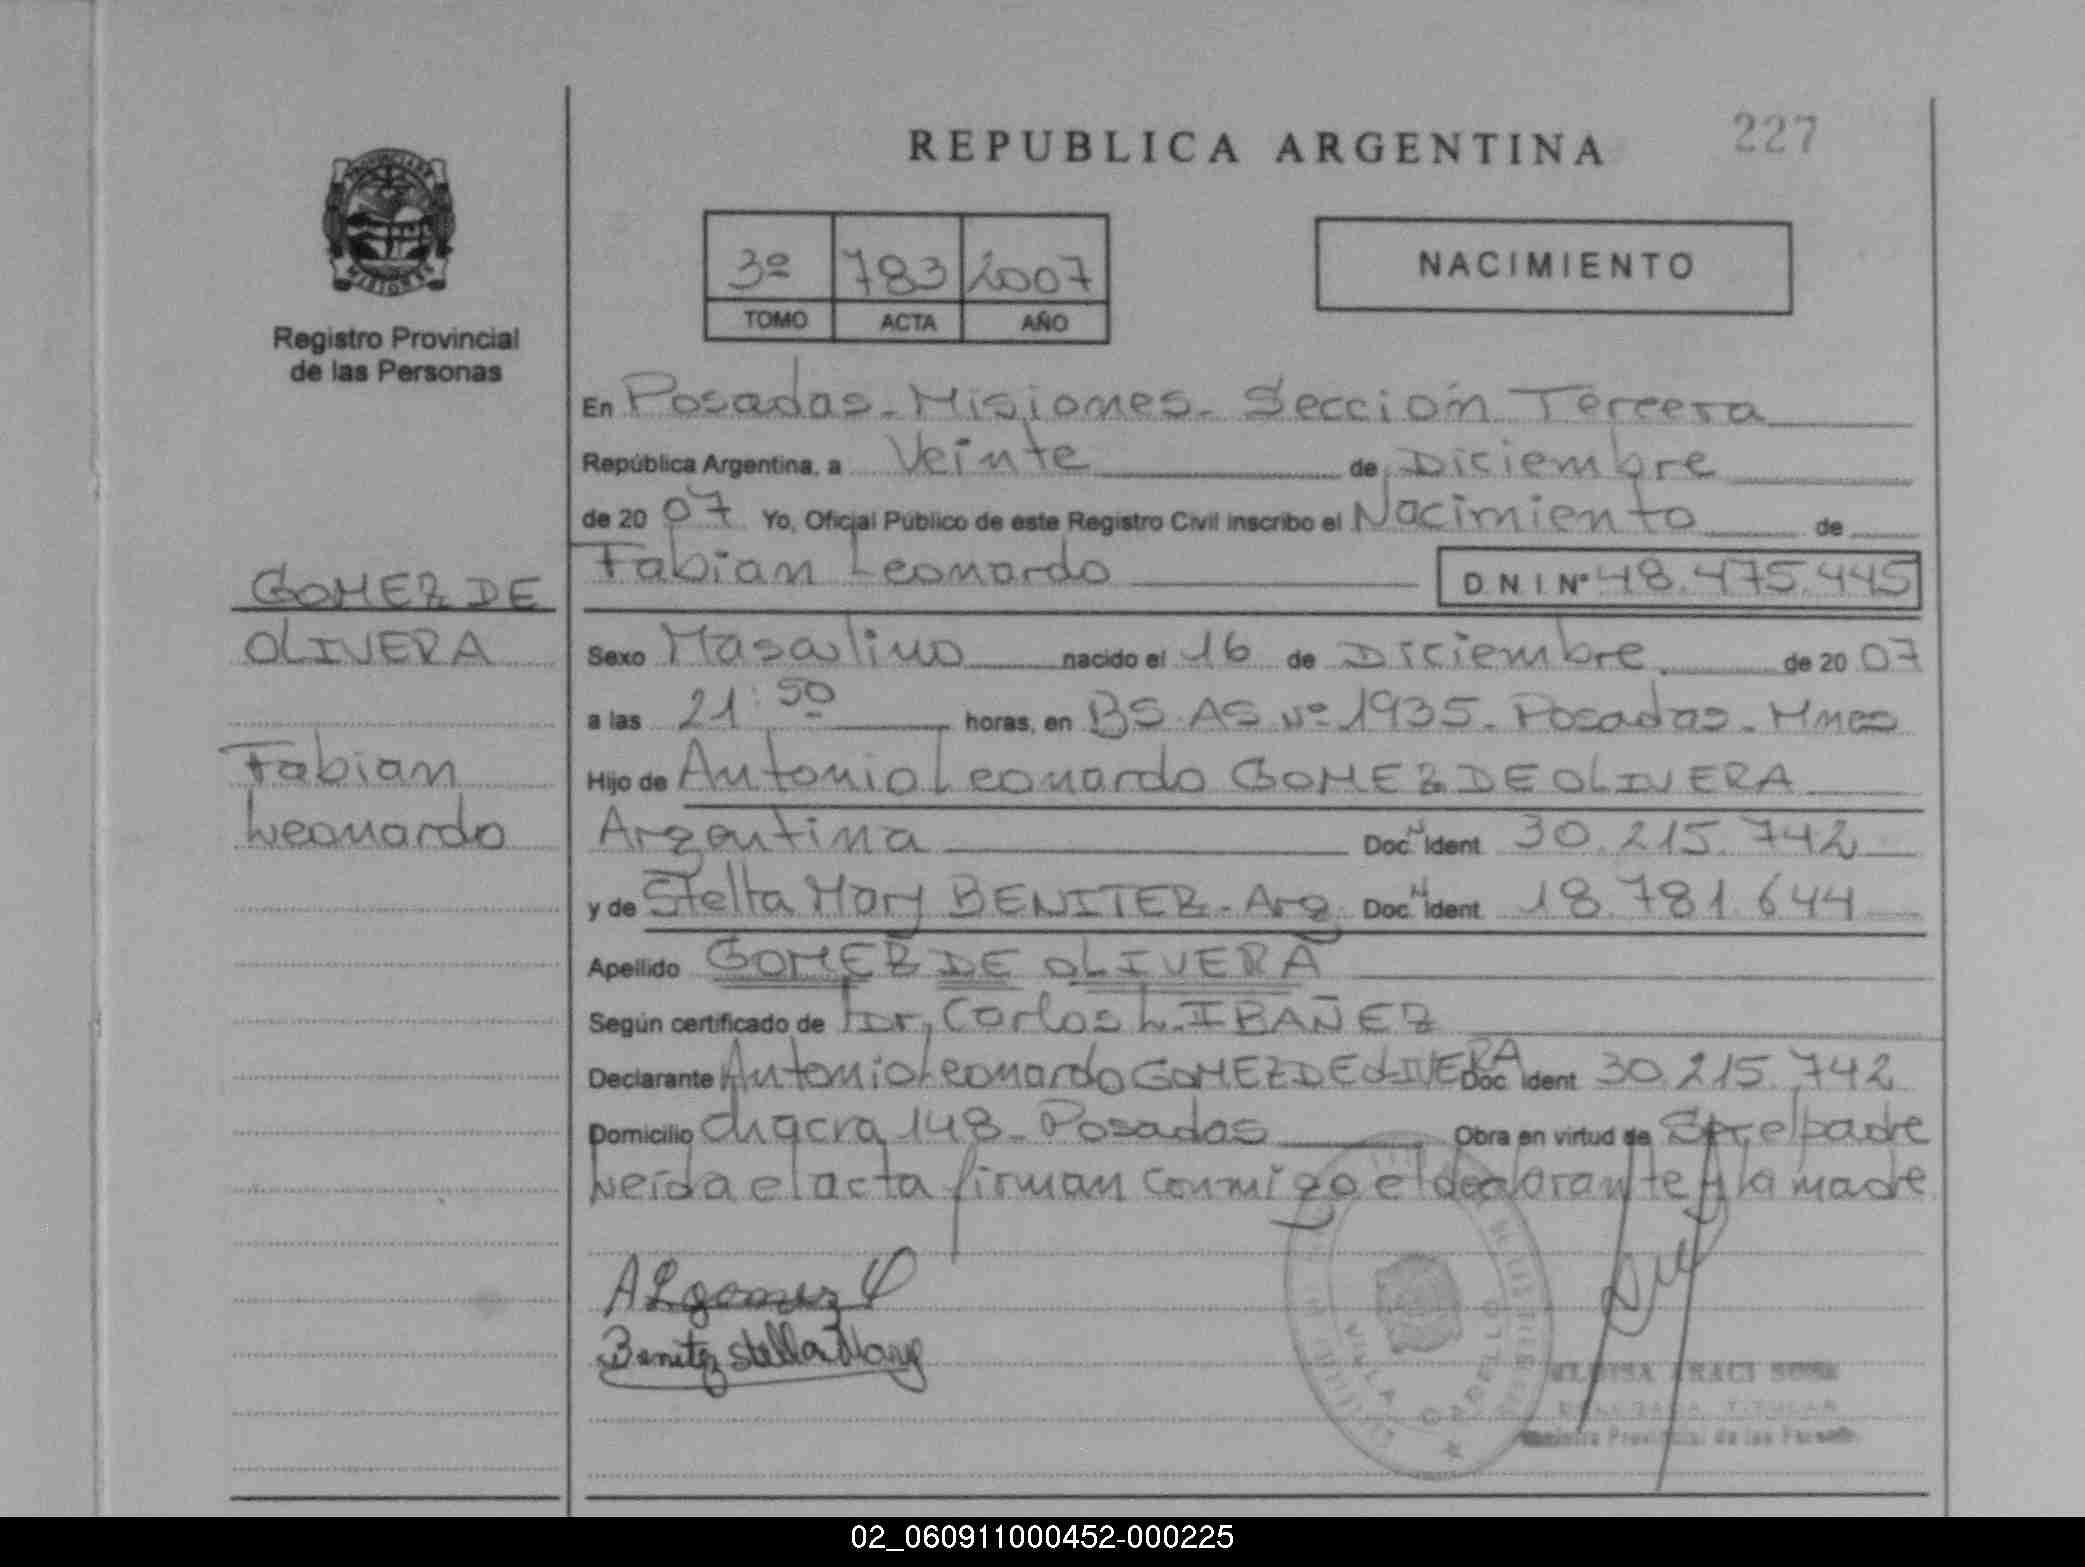 REPUBLICA ARGENTINA
227
PROVINCIA DE
MISIONES
Registro Provincial
de las Personas
3º 783 2007
TOMO ACTA AÑO
NACIMIENTO
En Posadas - Misiones - Sección Tercera
República Argentina, a Veinte de Diciembre
de 20 07 Yo, Oficial Público de este Registro Civil inscribo el Nacimiento de
Fabian Leonardo D.N.I Nº 48.475.445
GOMEZ DE
OLIVERA
Fabian
Leonardo
Sexo Masculino nacido el 16 de Diciembre de 20 07
a las 21:50 horas, en BS.AS Nº 1935 - Posadas - Mnes
Hijo de Antonio Leonardo GOMEZ DE OLIVERA
Argentina Doc. Ident 30.215.742
y de Stella Mary BENITEZ - Arg. Doc. Ident 18.781.644
Apellido GOMEZ DE OLIVERA
Según certificado de Dr, Carlos L. IBAÑEZ
Declarante Antonio Leonardo GOMEZ DE OLIVERA Doc Ident 30.215.742
Domicilio chacra 148 - Posadas Obra en virtud de Ser el padre
Leída el acta firman conmigo el declarante y la madre
ALgomez O
Benitez Stella Mary
VILLA CABELLO
ARACI SOSA
TITULAR
Registro Provincial de las Personas
02_060911000452-000225